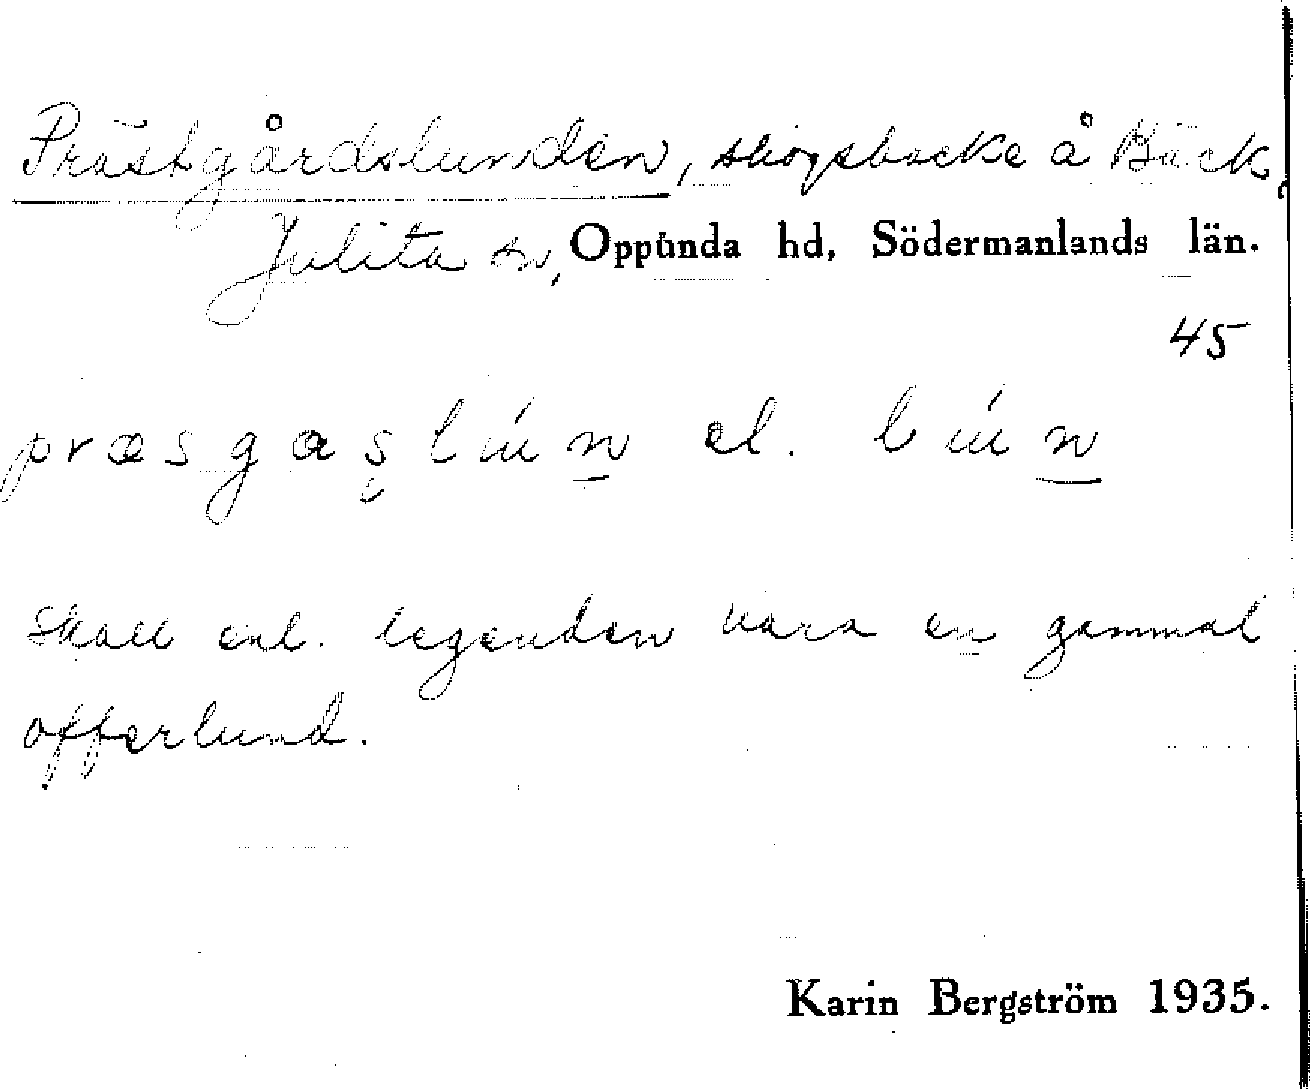 Prästgårdslunden, skogsbacke å Bäck,
Julita sn, Oppunda hd, Södermanlands län.
45
præsgaṣlún̲ el. lún̲
skall enl. legenden vara en gammal
offerlund.
Karin Bergström 1935.